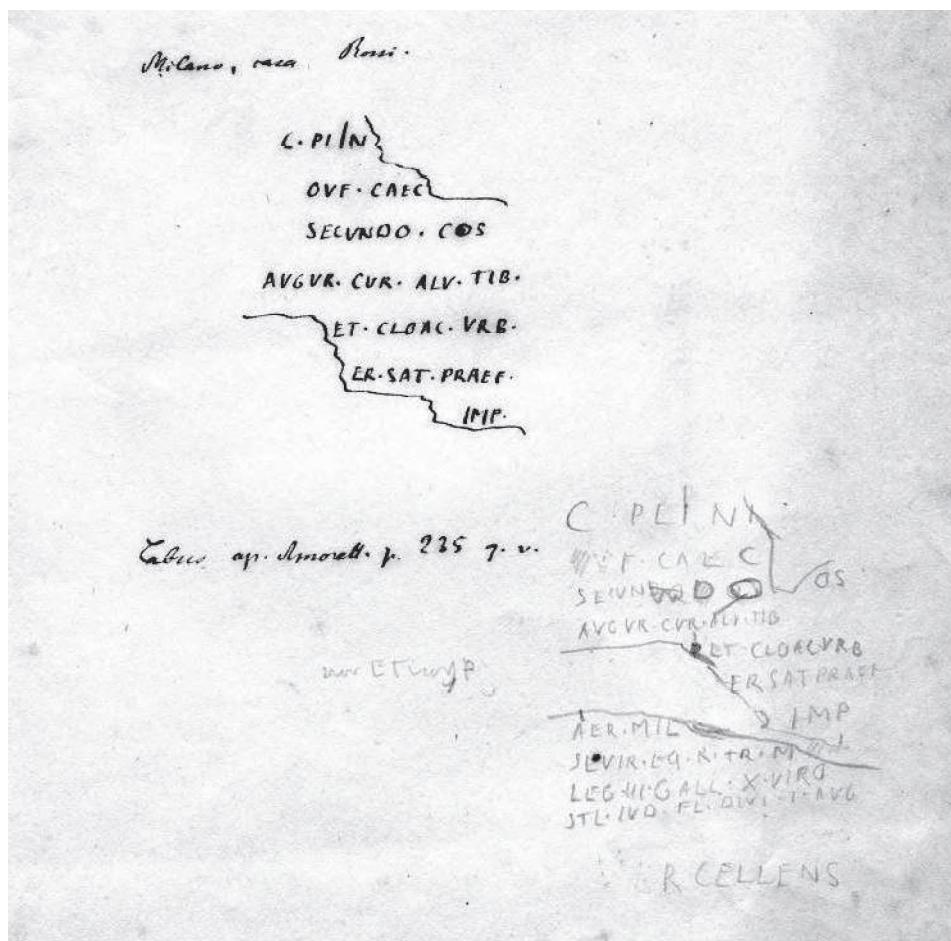 Milano, casa Rossi.
C. PLIN
OVF. CAEC
SECUNDO. COS
AVGVR. CVR. ALV. TIB.
ET. CLOAC. VRB.
ER. SAT. PRAEF.
IMP.
ap. Amorett. p. 235 q. v.
C PLINI
F. CAEC
SECUNDO OS
AVGVR. CVR. ALV. TIB
ET CLOAC VRB
ER SAT PRAEF
IMP
AER. MIL
SEVIR. EQ. R. TR. M
LEG III GALL. X. VIRO
STL. IVD. FL. DIVI. T. AVG
R CELLENS